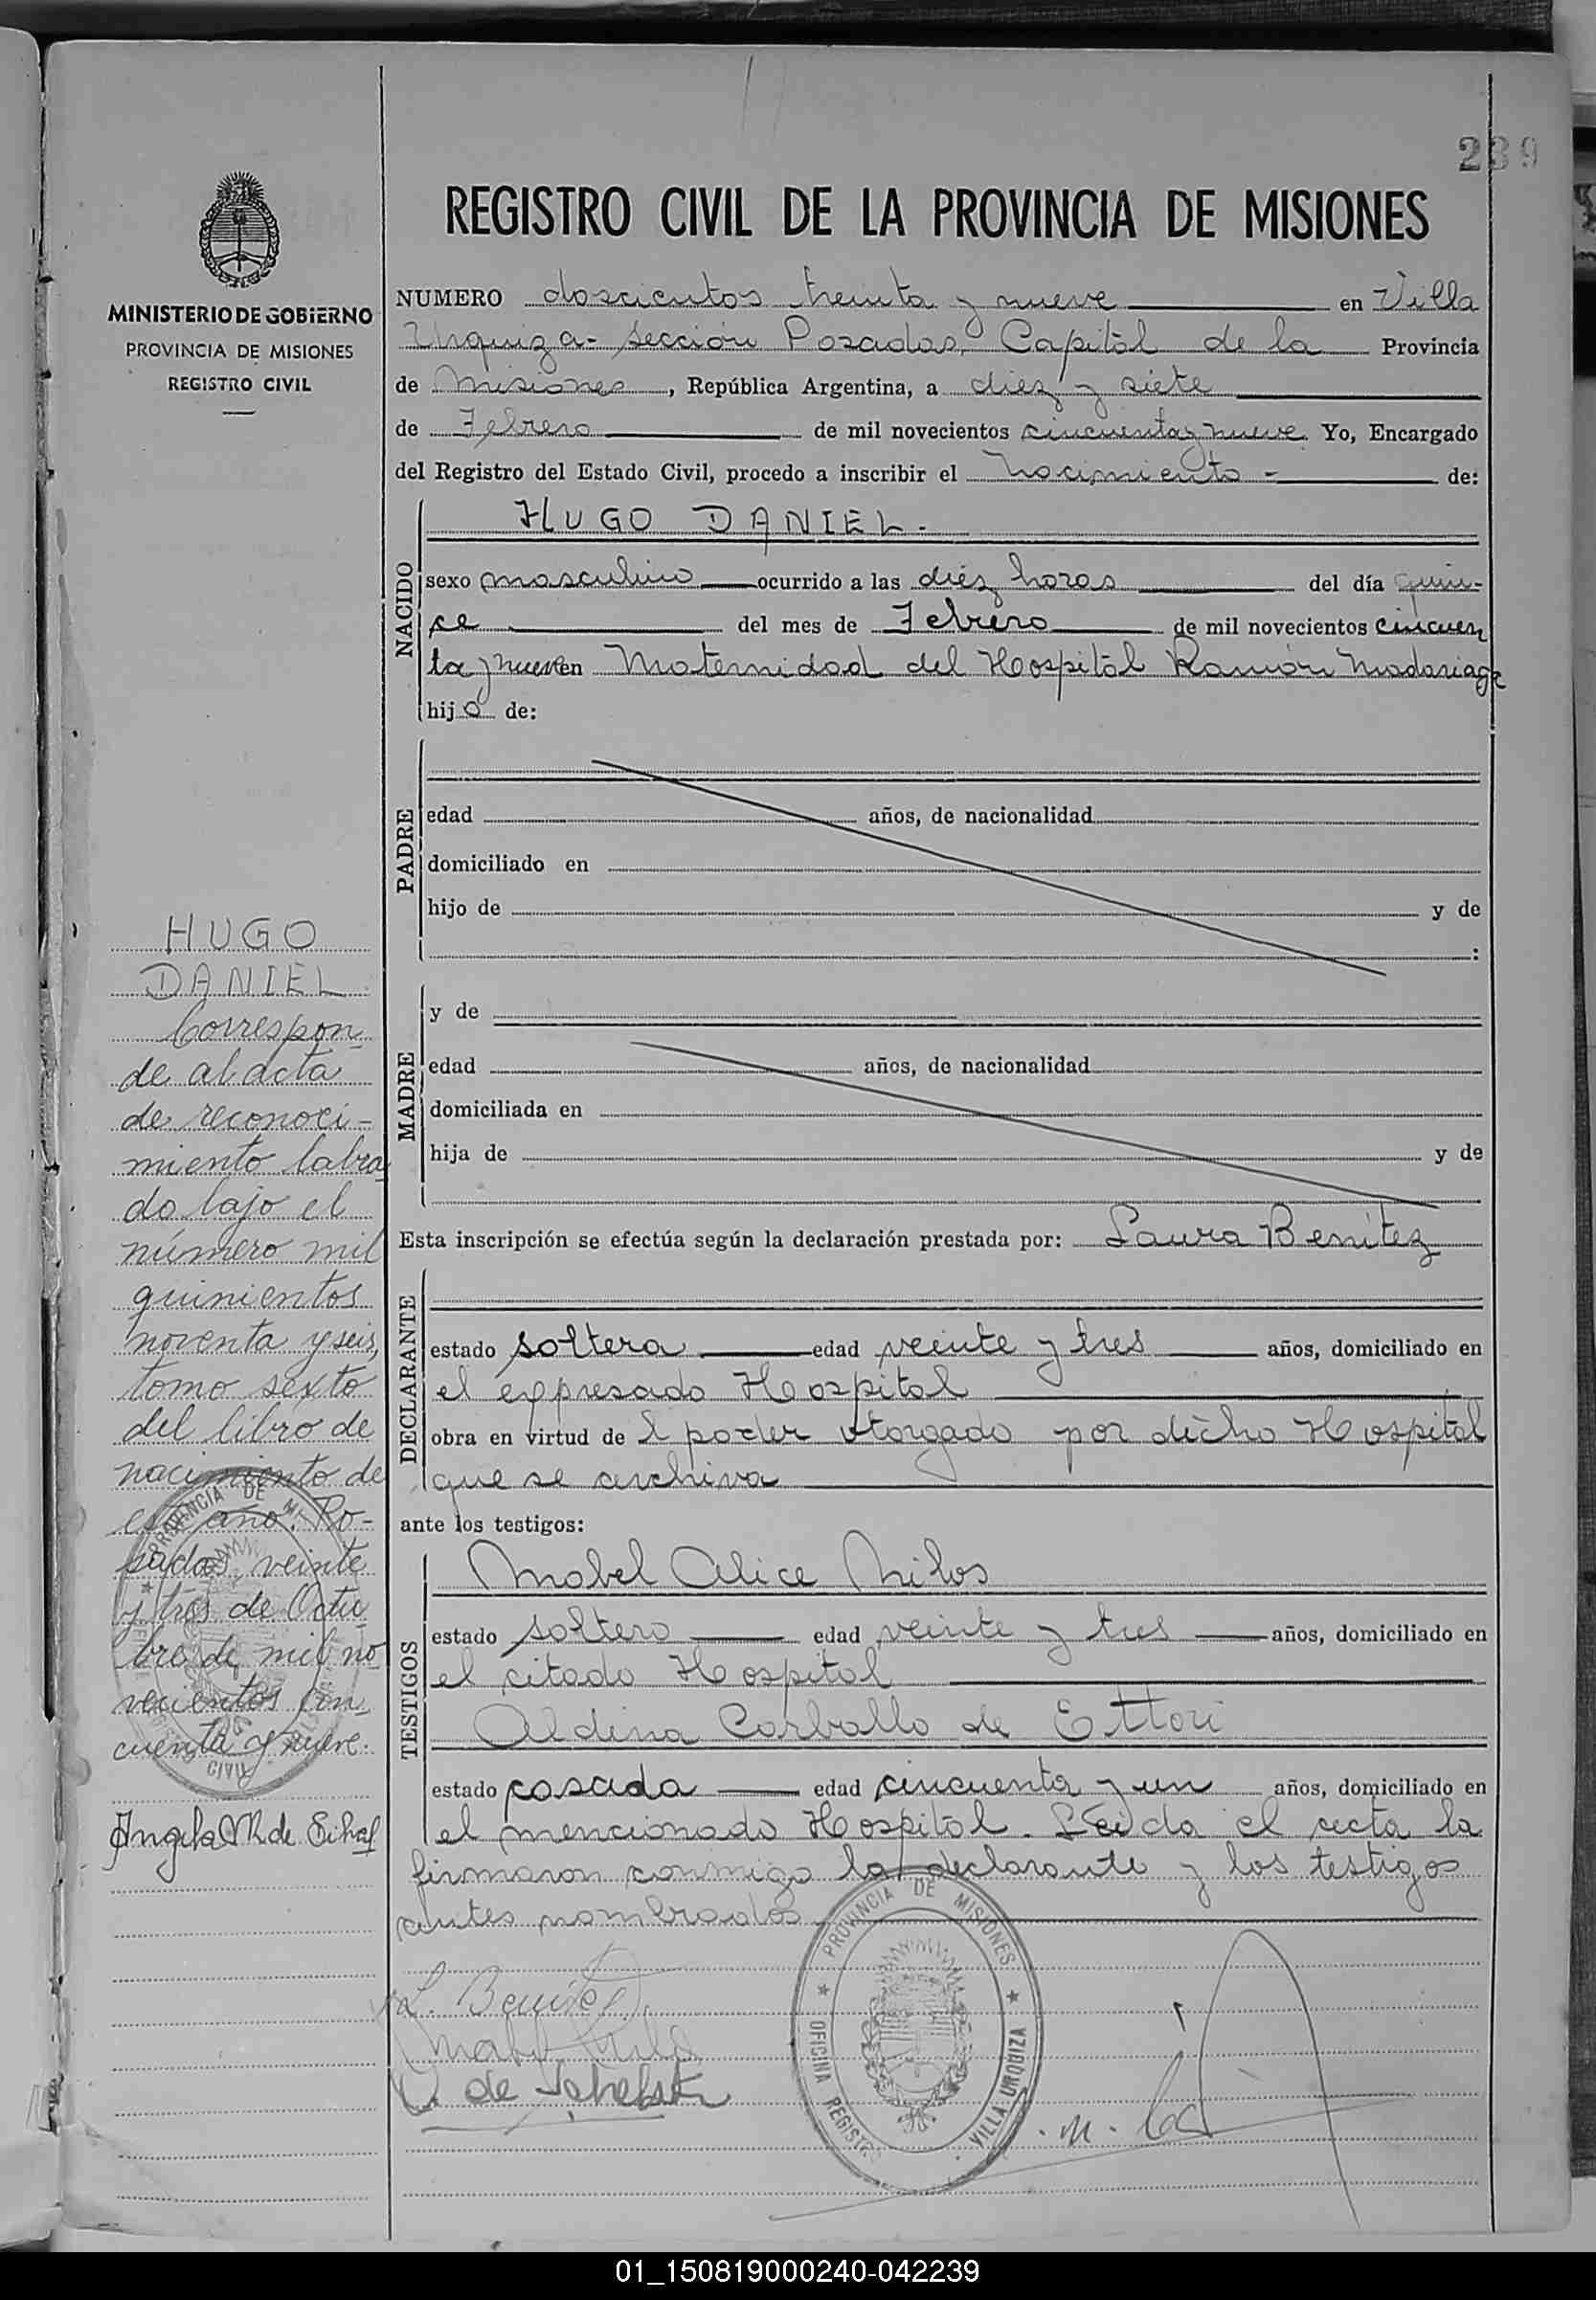 239
REGISTRO CIVIL DE LA PROVINCIA DE MISIONES
MINISTERIO DE GOBIERNO
PROVINCIA DE MISIONES
REGISTRO CIVIL
NUMERO doscientos treinta y nueve en Villa
Urquiza - Sección Posadas, Capital de la Provincia
de Misiones, República Argentina, a diez y siete
de Febrero de mil novecientos cincuenta y nueve. Yo, Encargado
del Registro del Estado Civil, procedo a inscribir el nacimiento - de:
NACIDO
HUGO DANIEL.-
sexo masculino ocurrido a las diez horas del día quin-
ce del mes de Febrero de mil novecientos cincuen
ta y nueve en Maternidad del Hospital Ramón Madariaga
hijo de:
PADRE
edad años, de nacionalidad
domiciliado en
hijo de y de
:
MADRE
y de
edad años, de nacionalidad
domiciliada en
hija de y de
Esta inscripción se efectúa según la declaración prestada por: Laura Benítez
DECLARANTE
estado soltera edad veinte y tres años, domiciliado en
el expresado Hospital
obra en virtud de l poder otorgado por dicho Hospital
que se archiva
ante los testigos:
TESTIGOS
Mabel Alice Milos
estado soltero edad veinte y tres años, domiciliado en
el citado Hospital
Aldina Carballo de Ettori
estado casada edad cincuenta y un años, domiciliado en
el mencionado Hospital. Leida el acta la
firmaron conmigo la declarante y los testigos
antes nombrados
L. Benítez
PROVINCIA DE MISIONES
OFICINA REGISTRO
VILLA URQUIZA
HUGO
DANIEL.
Correspon
de al acta
de reconoci-
miento labra
do bajo el
número mil
quinientos
noventa y seis,
tomo sexto
del libro de
nacimiento de
este año. Po-
sadas, veinte
y tres de Octu
bre de mil no
vecientos cin
cuenta y nueve.
PROVINCIA DE MI
CIVIL
01_150819000240-042239